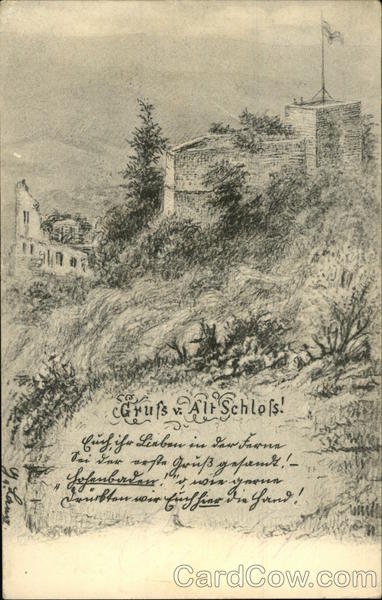 Gruſs v. Alt Schloſs!
Euch, ihr Lieben in der Ferne
Sei der erste Gruß gesandt! –
„Hohenbaden!“ O, wie gerne
Drückten wir Euch hier die Hand!
CardCow.com